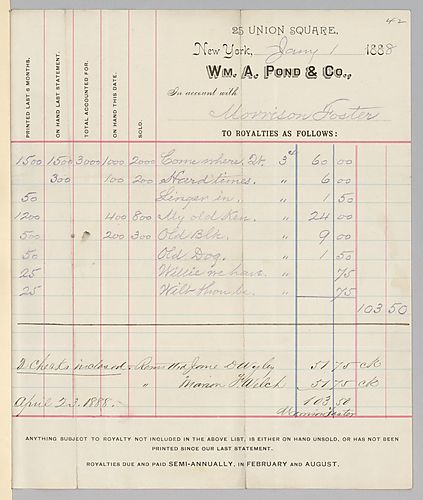 42
25 UNION SQUARE,
New York, Jany 1 1888
WM. A. POND & CO.,
In account with
Morrison Foster
TO ROYALTIES AS FOLLOWS:
PRINTED LAST 6 MONTHS. ON HAND LAST STATEMENT. TOTAL ACCOUNTED FOR. ON HAND THIS DATE. SOLD.
1500 1500 3000 1000 2000 Come where, Qt. 3 60 00
300 100 200 Hard times. " 6 00
50 Linger in. " 1 50
1200 400 800 My old Ken. " 24 00
500 200 300 Old Blk. " 9 00
50 Old Dog. " 1 50
25 Willie we have. " 75
25 Wilt thou be. " 75
103 50
2 Checks inclosed. D Wyley 51 75 ck
" Marion F Welch 51 75 ck
April 23. 1888. 103 50
Morrison Foster
ANYTHING SUBJECT TO ROYALTY NOT INCLUDED IN THE ABOVE LIST, IS EITHER ON HAND UNSOLD, OR HAS NOT BEEN
PRINTED SINCE OUR LAST STATEMENT.
ROYALTIES DUE AND PAID SEMI-ANNUALLY, IN FEBRUARY AND AUGUST.